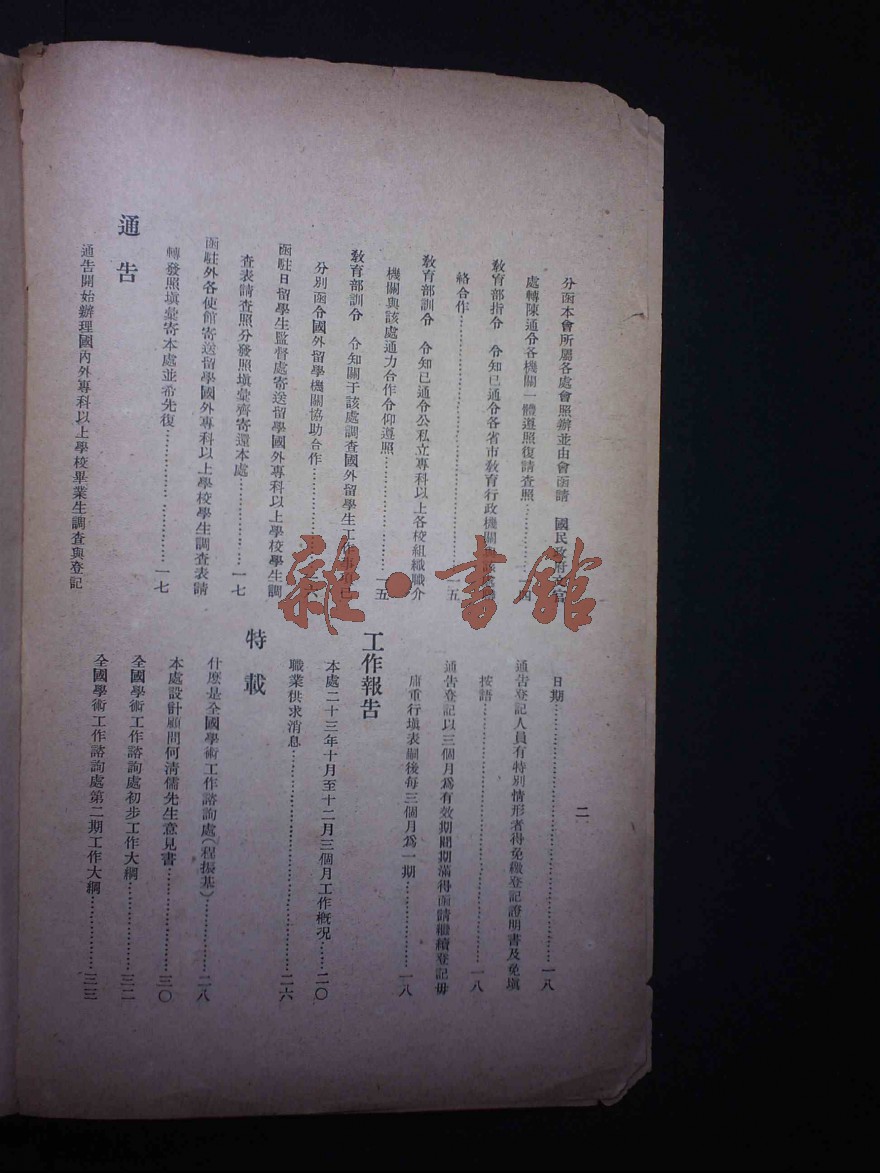 二
分函本會所屬各處會照辦並由會函請　國民政府文官
處轉陳通令各機關一體遵照復請查照…………一四
教育部指令　令知已通令各省市教育行政機關
絡合作……………………一五
教育部訓令　令知已通令公私立專科以上各校組織職介
機關與該處通力合作令仰遵照……………一五
教育部訓令　令知關于該處調查國外留學生工作
分別函令國外留學機關協助合作……………
函駐日留學生監督處寄送留學國外專科以上學校學生調
查表請查照分發照填彙齊寄還本處……………一七
函駐外各使館寄送留學國外專科以上學校學生調查表請
轉發照填彙寄本處並希先復……………一七
通告
通告開始辦理國內外專科以上學校畢業生調查與登記
日期……………………一八
通告登記人員有特別情形者得免繳登記證明書及免填
按語……………………一八
通告登記以三個月爲有效期間期滿得函請繼續登記毋
庸重行填表嗣後每三個月爲一期……………一八
工作報告
本處二十三年十月至十二月三個月工作概况……二〇
職業供求消息……………………二六
特載
什麼是全國學術工作諮詢處(程振基)…………二八
本處設計顧問何清儒先生意見書……………三〇
全國學術工作諮詢處初步工作大綱……………三二
全國學術工作諮詢處第二期工作大綱…………三三
雜·書館